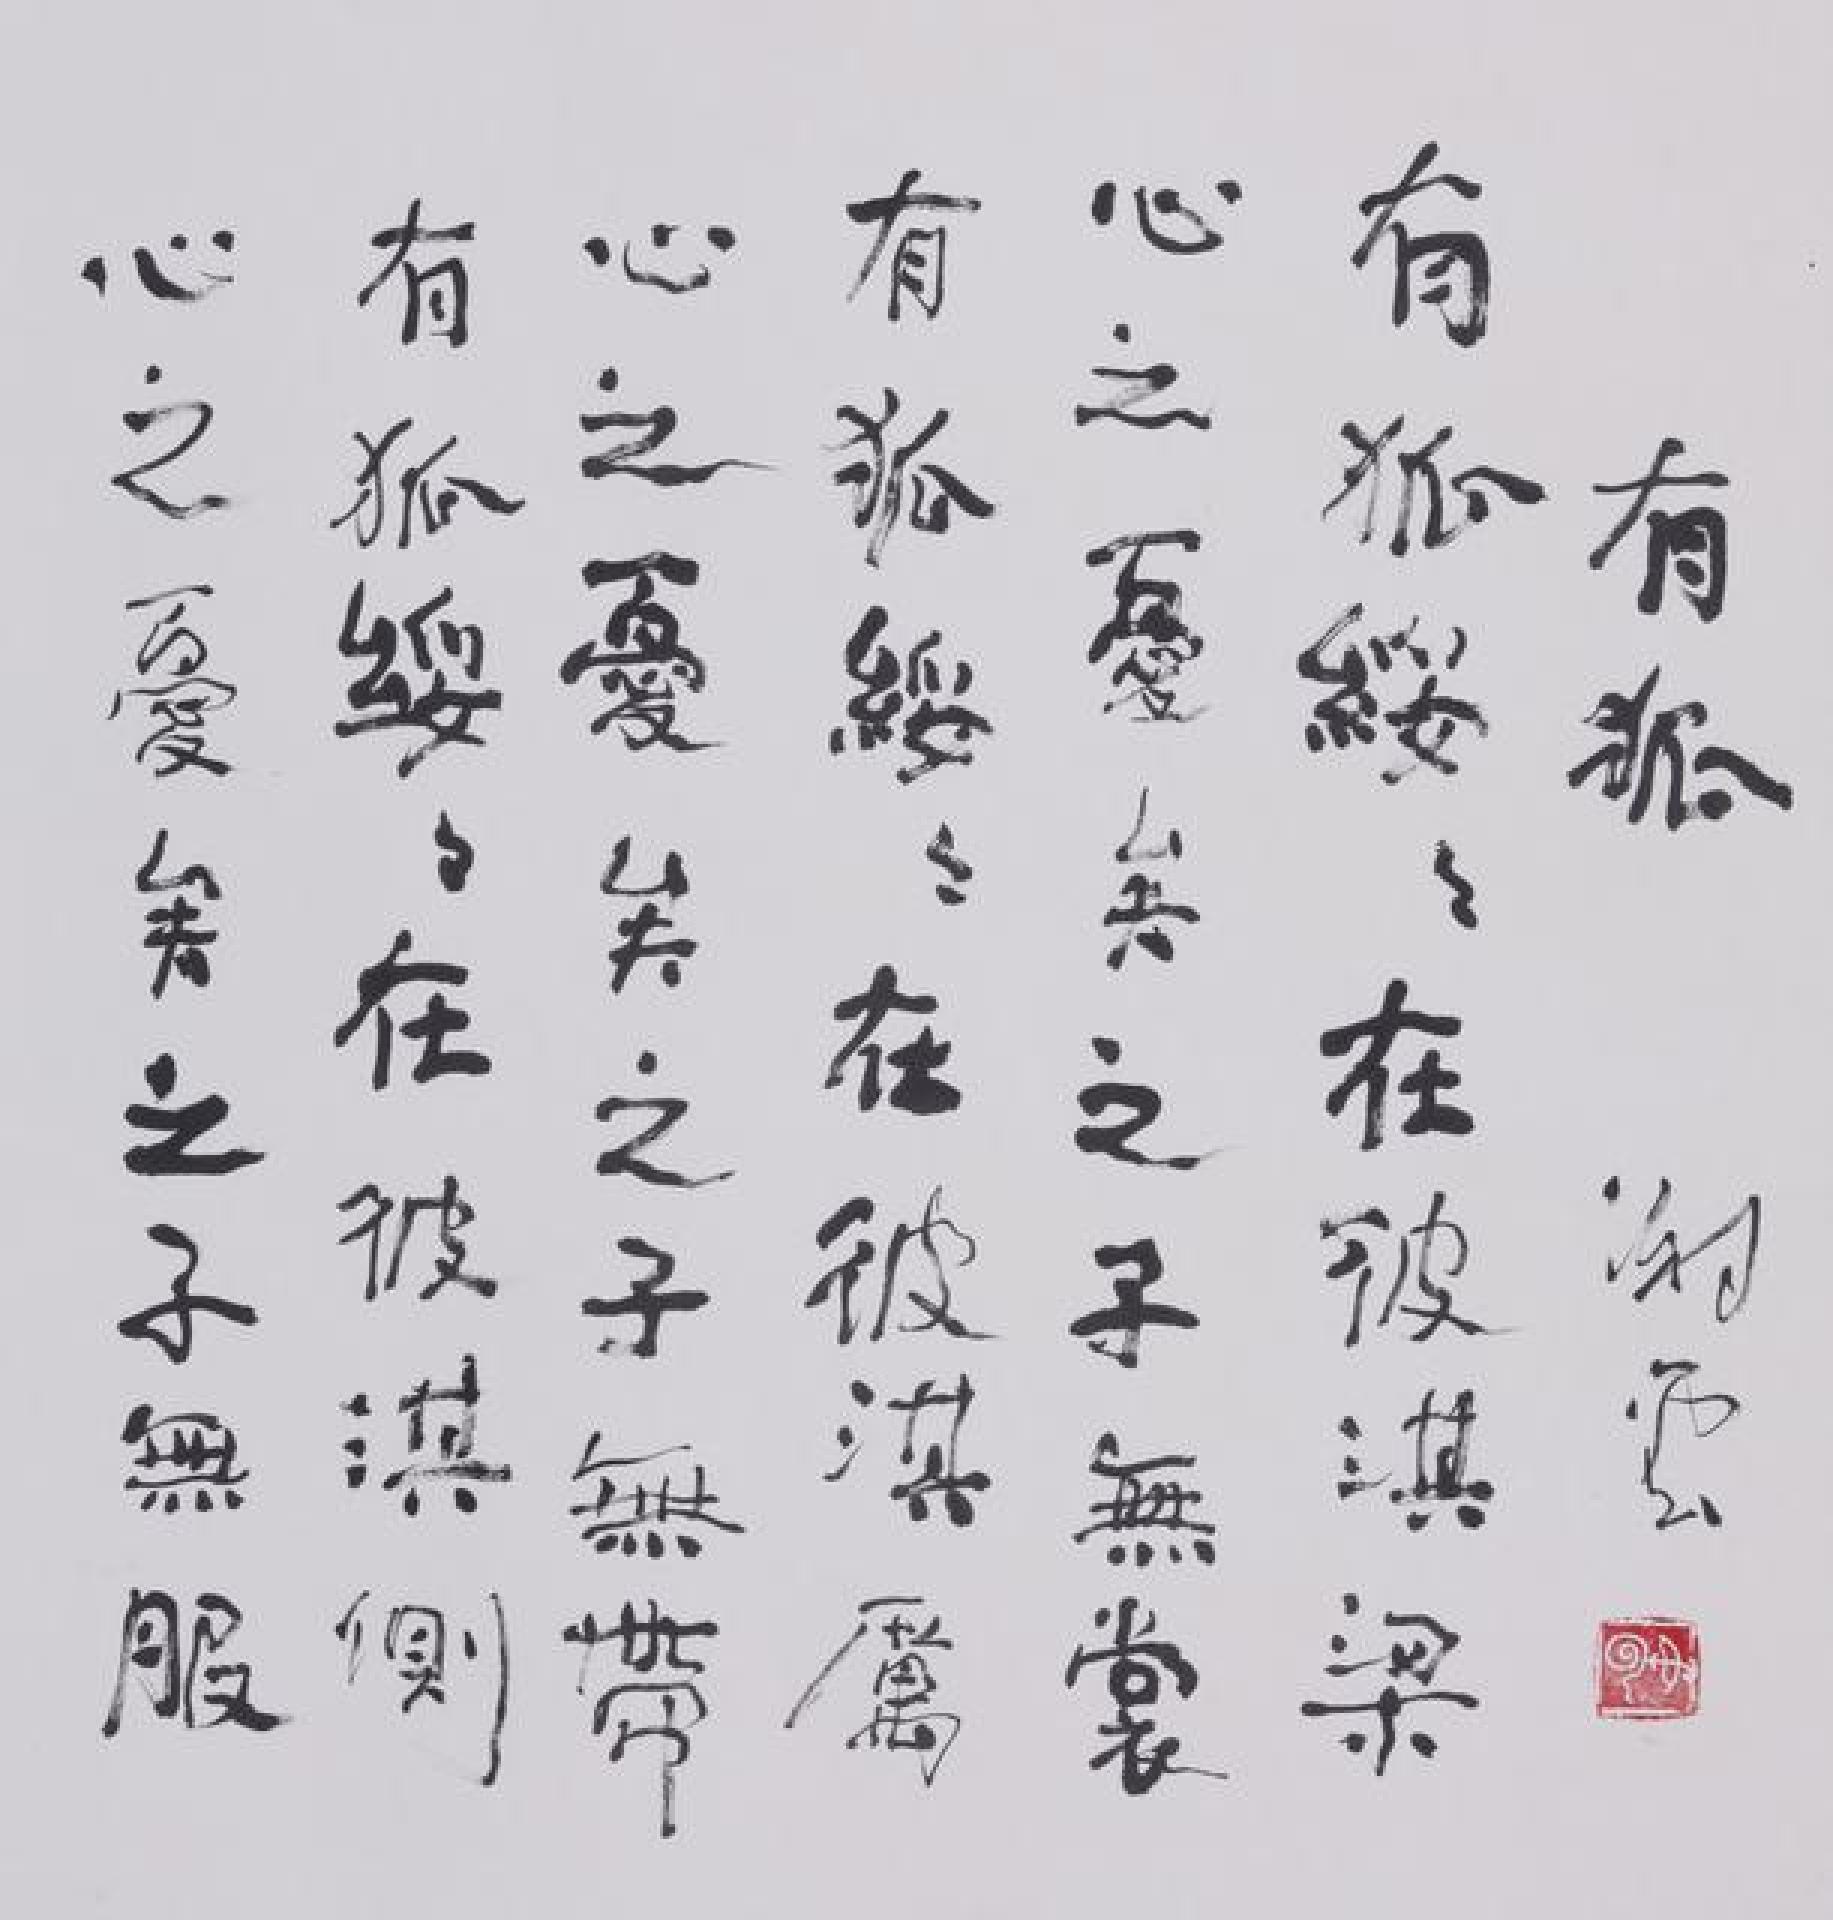 有狐 翔雲
有狐綏〻在彼淇梁
心之憂矣之子無裳
有狐綏〻在彼淇厲
心之憂矣之子無帶
有狐綏〻在彼淇側
心之憂矣之子無服